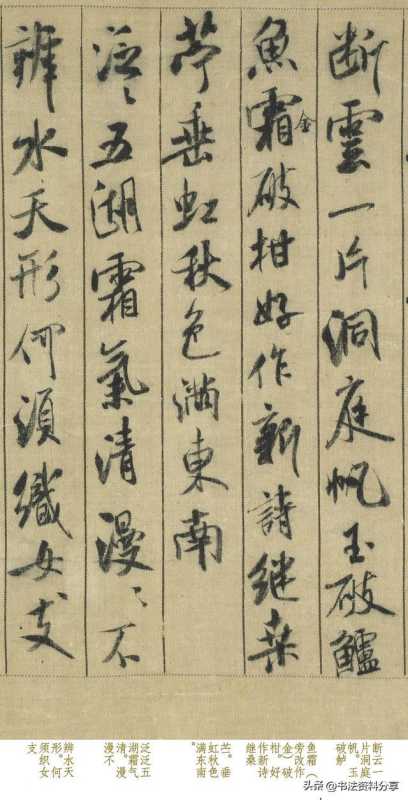 断雲一片洞庭帆玉破鱸
魚霜金破柑好作新詩继桑
苧垂虹秋色満東南
泛〻五湖霜氣清漫〻不
辨水天形何須織女支
断云一
片洞庭
帆。玉
破鲈
鱼霜（
旁改作
金）破
柑。好
作新诗
继桑
苎。垂
虹秋色
满东南
。
泛泛五
湖霜气
清。漫
漫不
辨水天
形。何
须织女
支
头条@书法资料分享